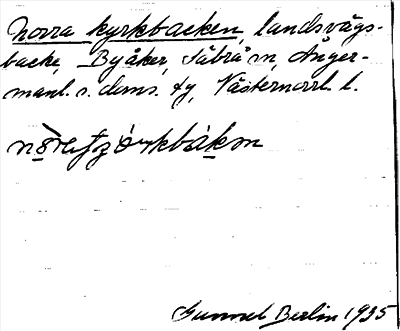 Norra kyrkbacken, landsvägs-
backe, Byåker, Säbrå sn, Ånger-
manl. s. doms. tg, Västernorrl. l.
Gunnel Berlin 1935